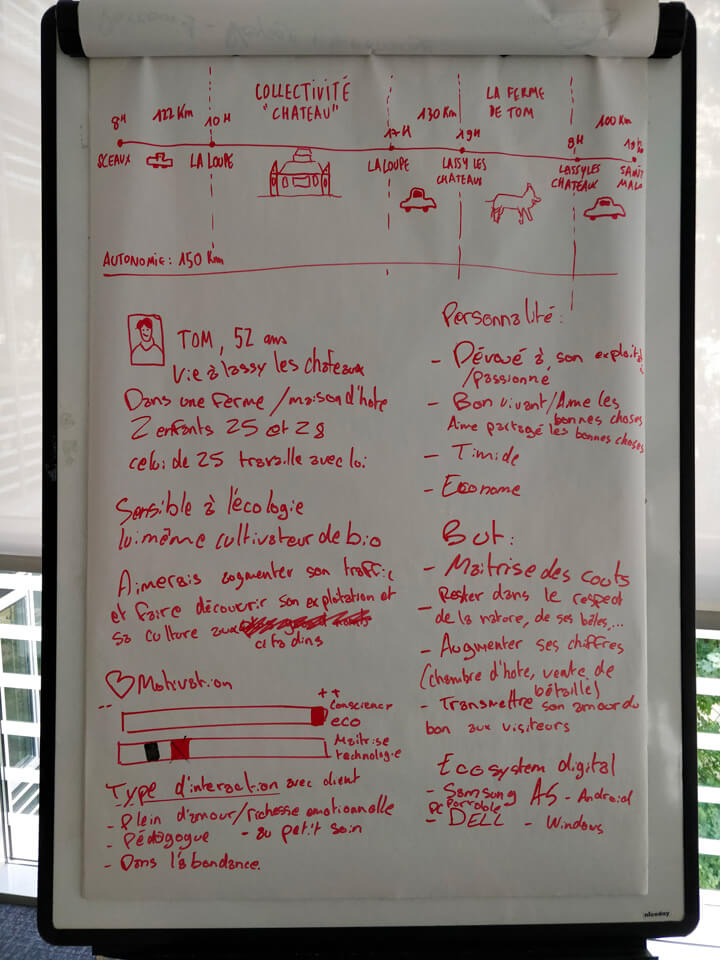 COLLECTIVITÉ
"CHATEAU"
LA FERME
DE TOM
8H
122 Km
10H
17H
130 Km
19H
9H
100 Km
SCEAUX
LA LOUPE
LA LOUPE
LASSY LES
CHATEAUX
LASSY LES
CHATEAUX
SAINT
MALO
AUTONOMIE : 150 Km
TOM, 52 ans
Vie à lassy les chateaux
Dans une ferme / maison d'hote
2 enfants 25 et 28
celui de 25 travaille avec lui
Sensible à l'écologie
lui même cultivateur de bio
Aimerais augmenter son traffic
et faire découvrir son explotation et
sa culture aux
citadins
Motivation
++
--
Conscience
eco
Maitrise
technologie
Type d'interaction avec client
- plein d'amour/richesse emotionnelle
- Pédagogue - au petit soin
- Dans l'abondance.
Personnalité :
- Dévoué à son exploitat
/passionné
- Bon vivant/Aime les
bonnes choses
Aime partagé les bonnes choses
- Timide
- Econome
But :
- Maitrise des couts
- Rester dans le respect
de la nature, de ses bêtes...
- Augmenter ses chiffres
(chambre d'hote, vente de
bétaille)
- Transmettre son amour du
bon aux visiteurs
Ecosystem digital
- Samsung A5 - Android
PC portable
- DELL - Windows
niceday